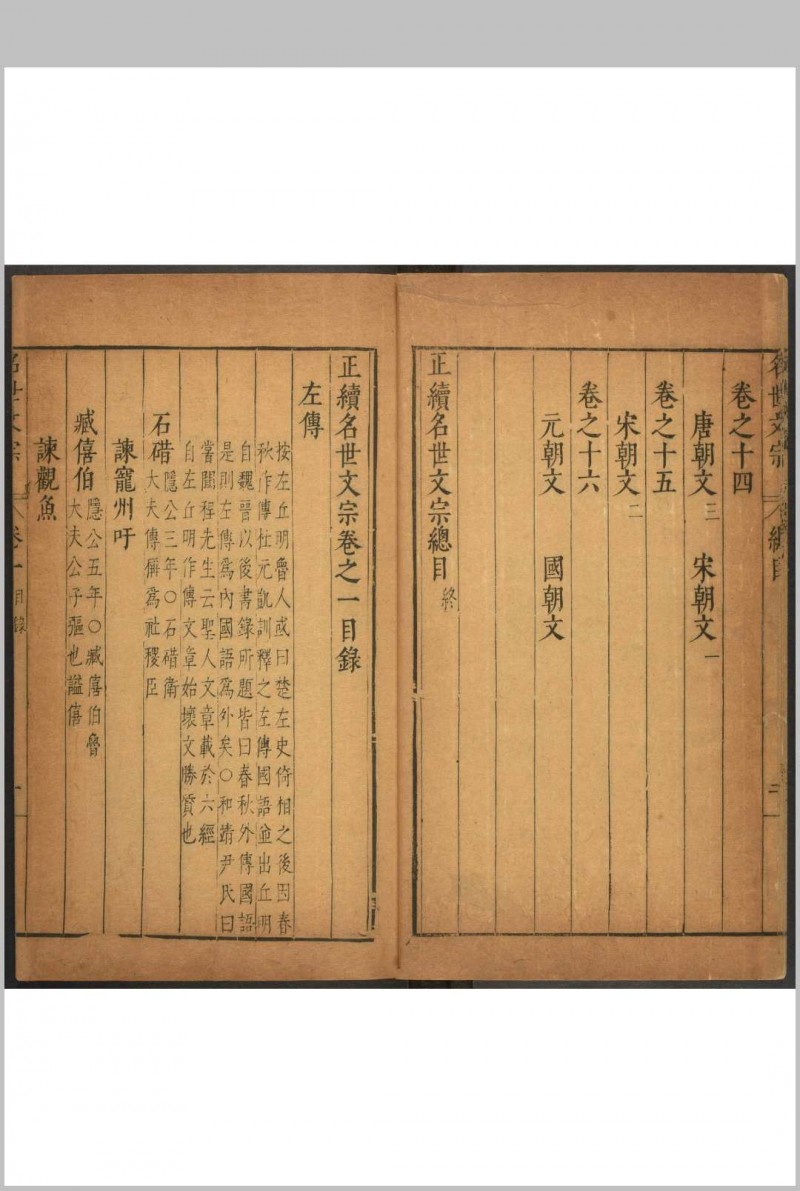 卷之十四
唐朝文三 宋朝文一
卷之十五
宋朝文二
卷之十六
元朝文 國朝文
正續名世文宗總目終
正續名世文宗卷之一目錄
左傳
按左丘明魯人或曰楚左史倚相之後因春
秋作傳杜元凱訓釋之左傳國語並出丘明
自魏晉以後書錄所題皆曰春秋外傳國語
是則左傳為內國語為外矣○和靖尹氏曰
嘗聞程先生云聖人文章載於六經
自左丘明作傳文章始壞文勝質也
石碏隱公三年○石碏衛
大夫傳稱為社稷臣
諫寵州吁
臧僖伯隱公五年○臧僖伯魯
大夫公子彄也謚僖
諫觀魚
名世文宗 卷一目錄 一